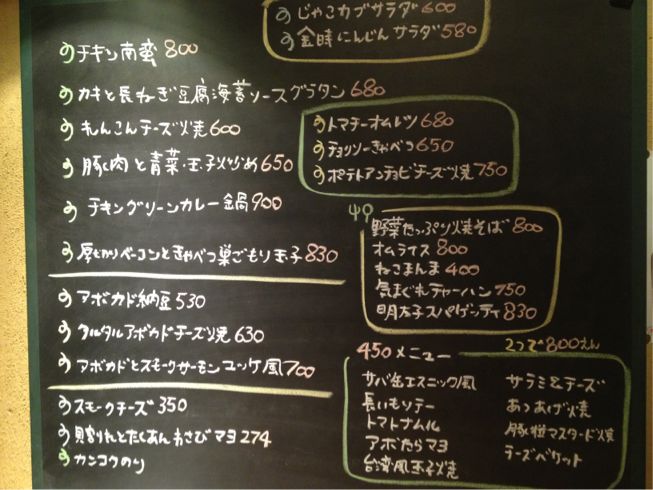 じゃこカブサラダ 600
金時にんじんサラダ 580
チキン南蛮 800
カキと長ねぎ豆腐海苔ソースグラタン 680
れんこんチーズ焼 600
豚肉と青菜・玉子炒め 650
チキングリーンカレー鍋 900
厚切りベーコンときゃべつ巣ごもり玉子 830
トマチーオムレツ 680
チョリソーきゃべつ 650
ポテトアンチョビチーズ焼 750
野菜たっぷり焼そば 800
オムライス 800
ねこまんま 400
気まぐれチャーハン 750
明太子スパゲッティ 830
アボカド納豆 530
タルタルアボカドチーズ焼 630
アボカドとスモークサーモンユッケ風 700
スモークチーズ 350
貝割れとたくあんわさびマヨ 274
カンコクのり
450メニュー 2つで800えん
サバ缶エスニック風
長いもソテー
トマトナムル
アボたらマヨ
台湾風玉子焼
サラミ&チーズ
あつあげ焼
豚粒マスタード焼
チーズベケット